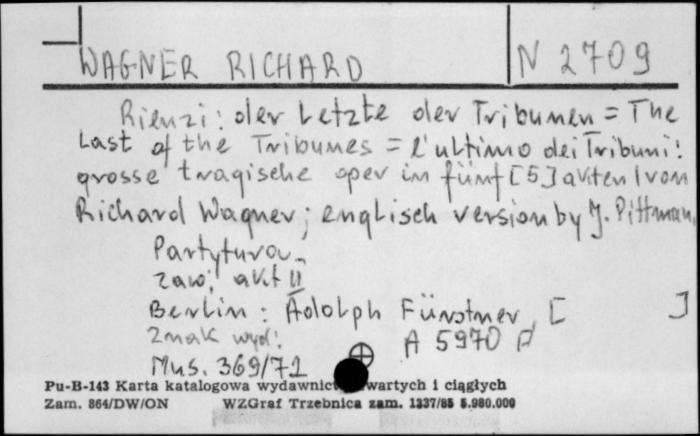 WAGNER RICHARD N 2709
Rienzi: der Letzte der Tribunen = The
Last of the Tribunes = l'ultimo dei Tribuni:
grosse tragische oper in fünf [5] akten / von
Richard Wagner; englisch version by J. Pittman.
Partytura.
Zaw: akt II
Berlin: Adolph Fürstner, [ ]
Znak wyd: A 5970 F
Mus. 369/71
Pu-B-143 Karta katalogowa wydawnict wartych i ciągłych
Zam. 864/DW/ON WZGraf Trzebnica zam. 1337/85 5.980.000